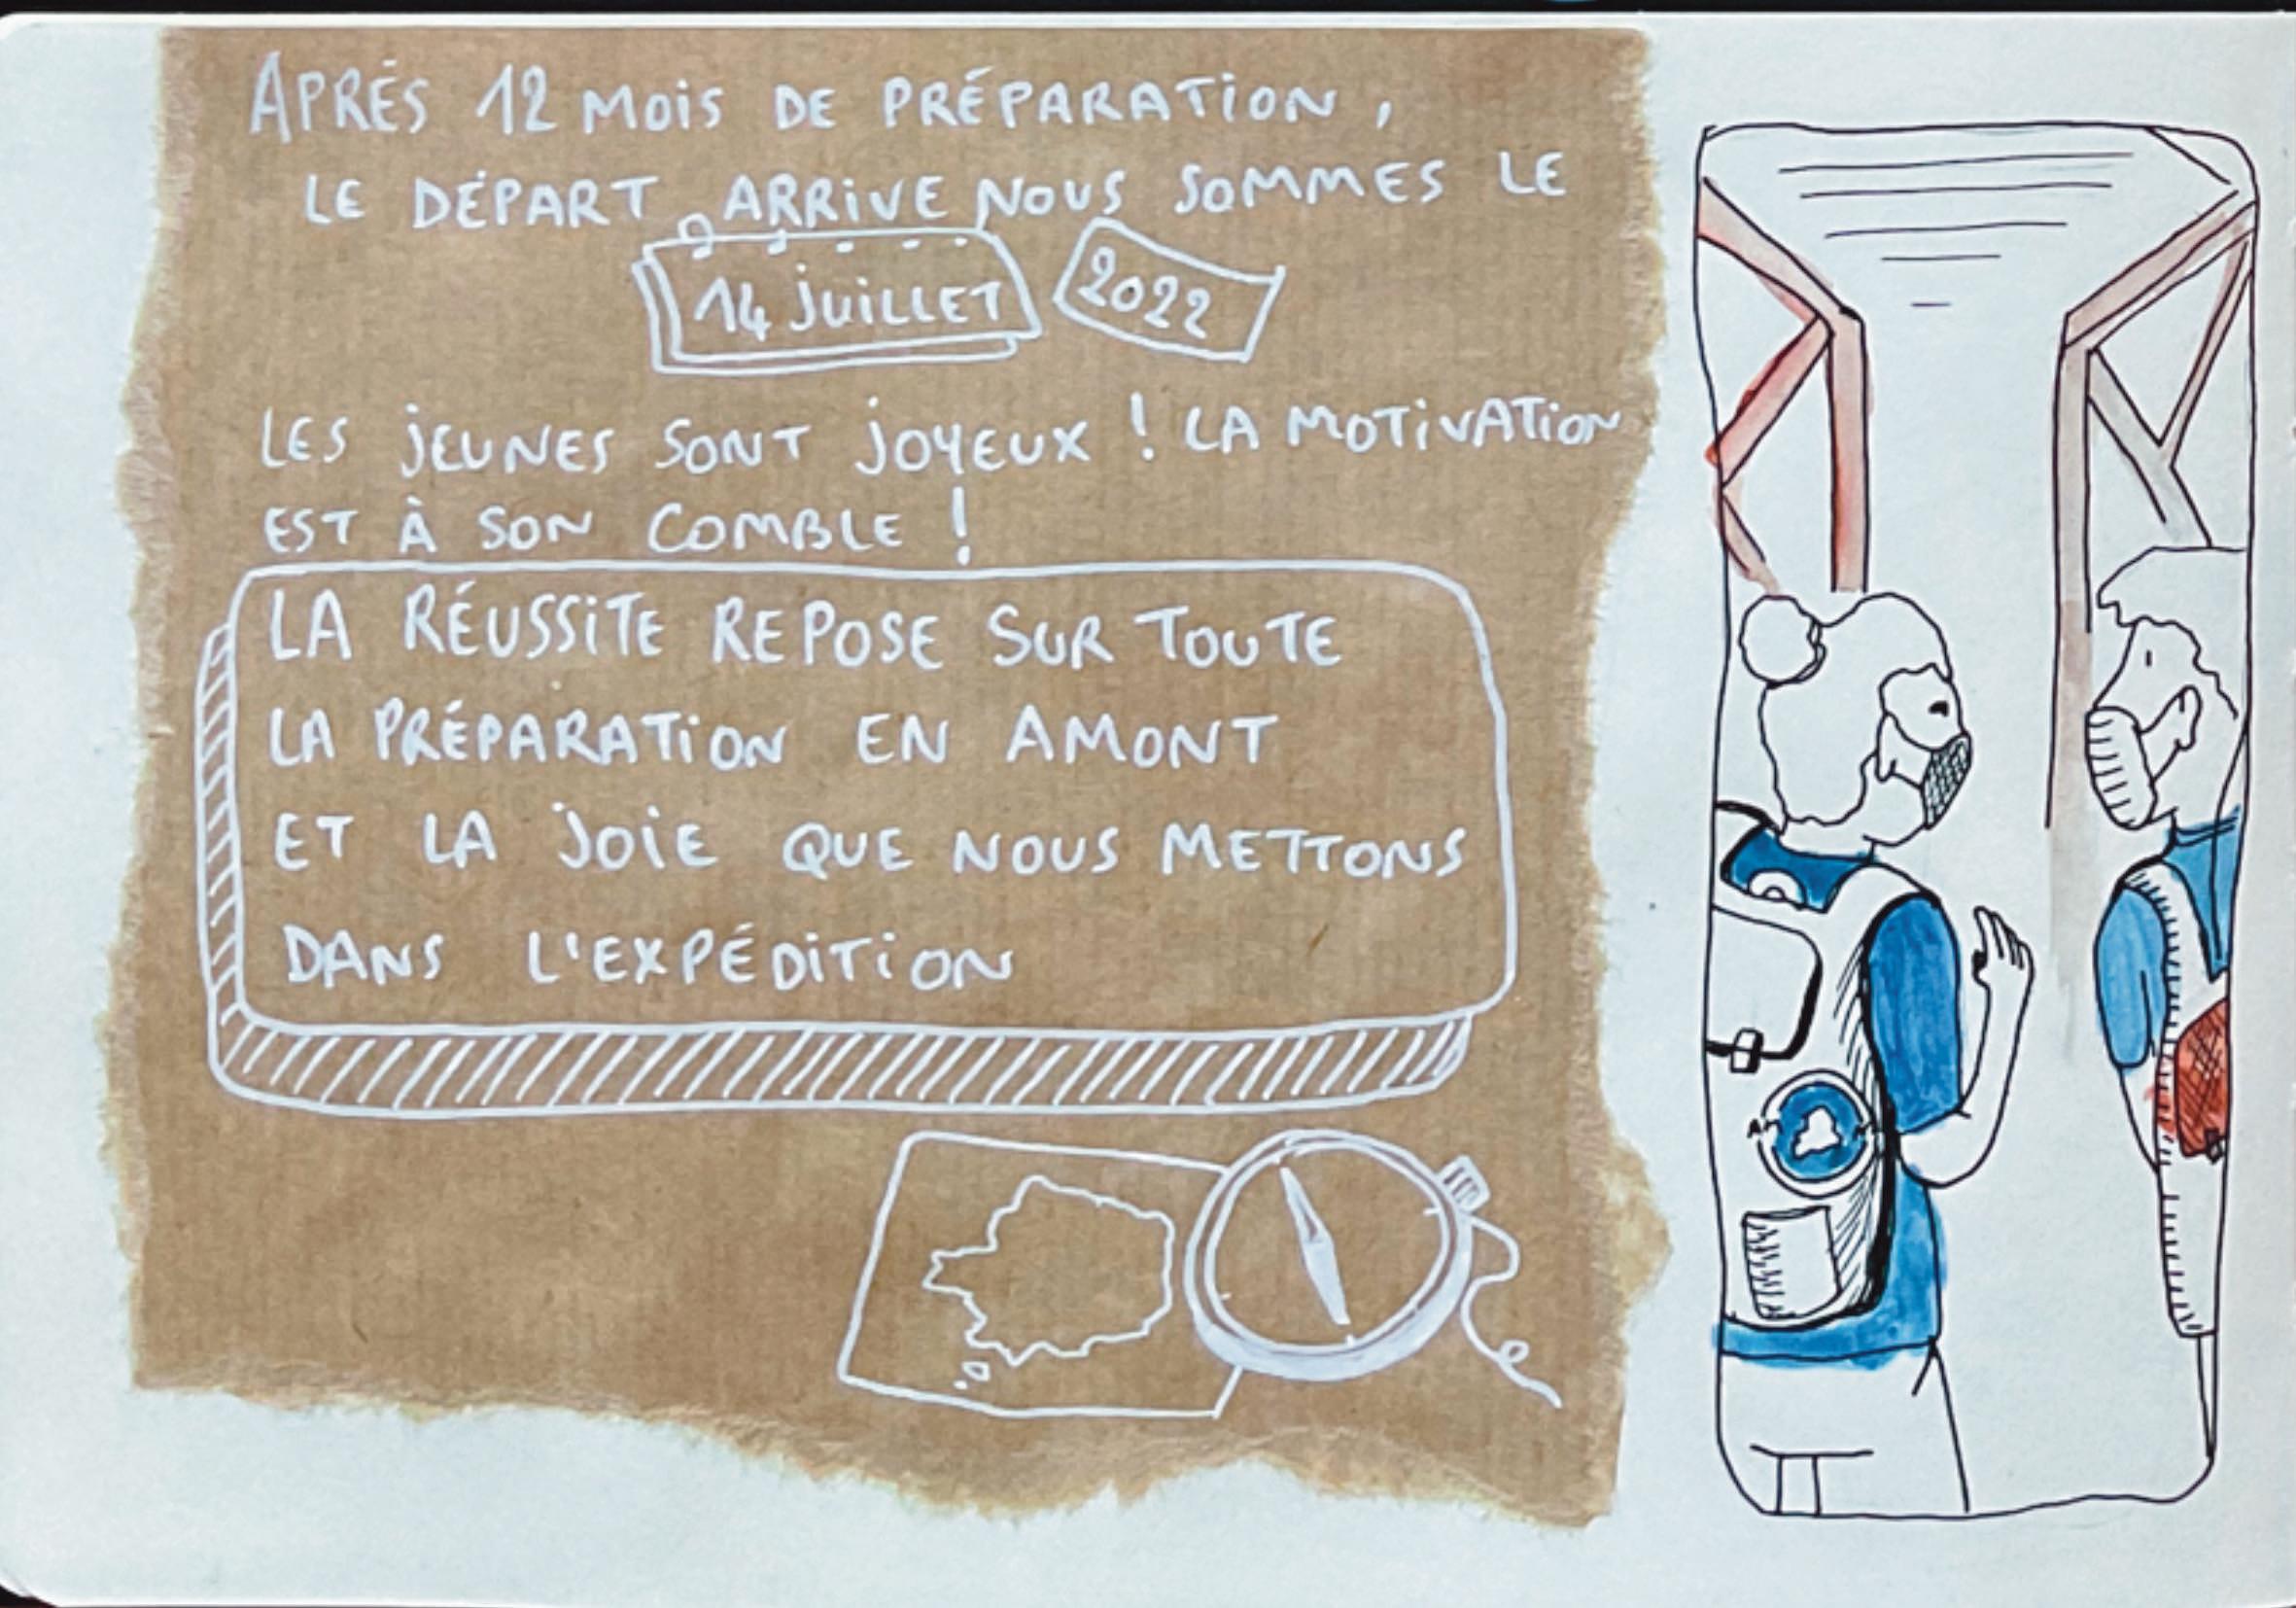 APRÉS 12 MOIS DE PRÉPARATION,
LE DÉPART ARRIVE NOUS SOMMES LE
14 JUILLET 2022
LES JEUNES SONT JOYEUX ! LA MOTIVATION
EST À SON COMBLE !
LA RÉUSSITE REPOSE SUR TOUTE
LA PRÉPARATION EN AMONT
ET LA JOIE QUE NOUS METTONS
DANS L'EXPÉDITION